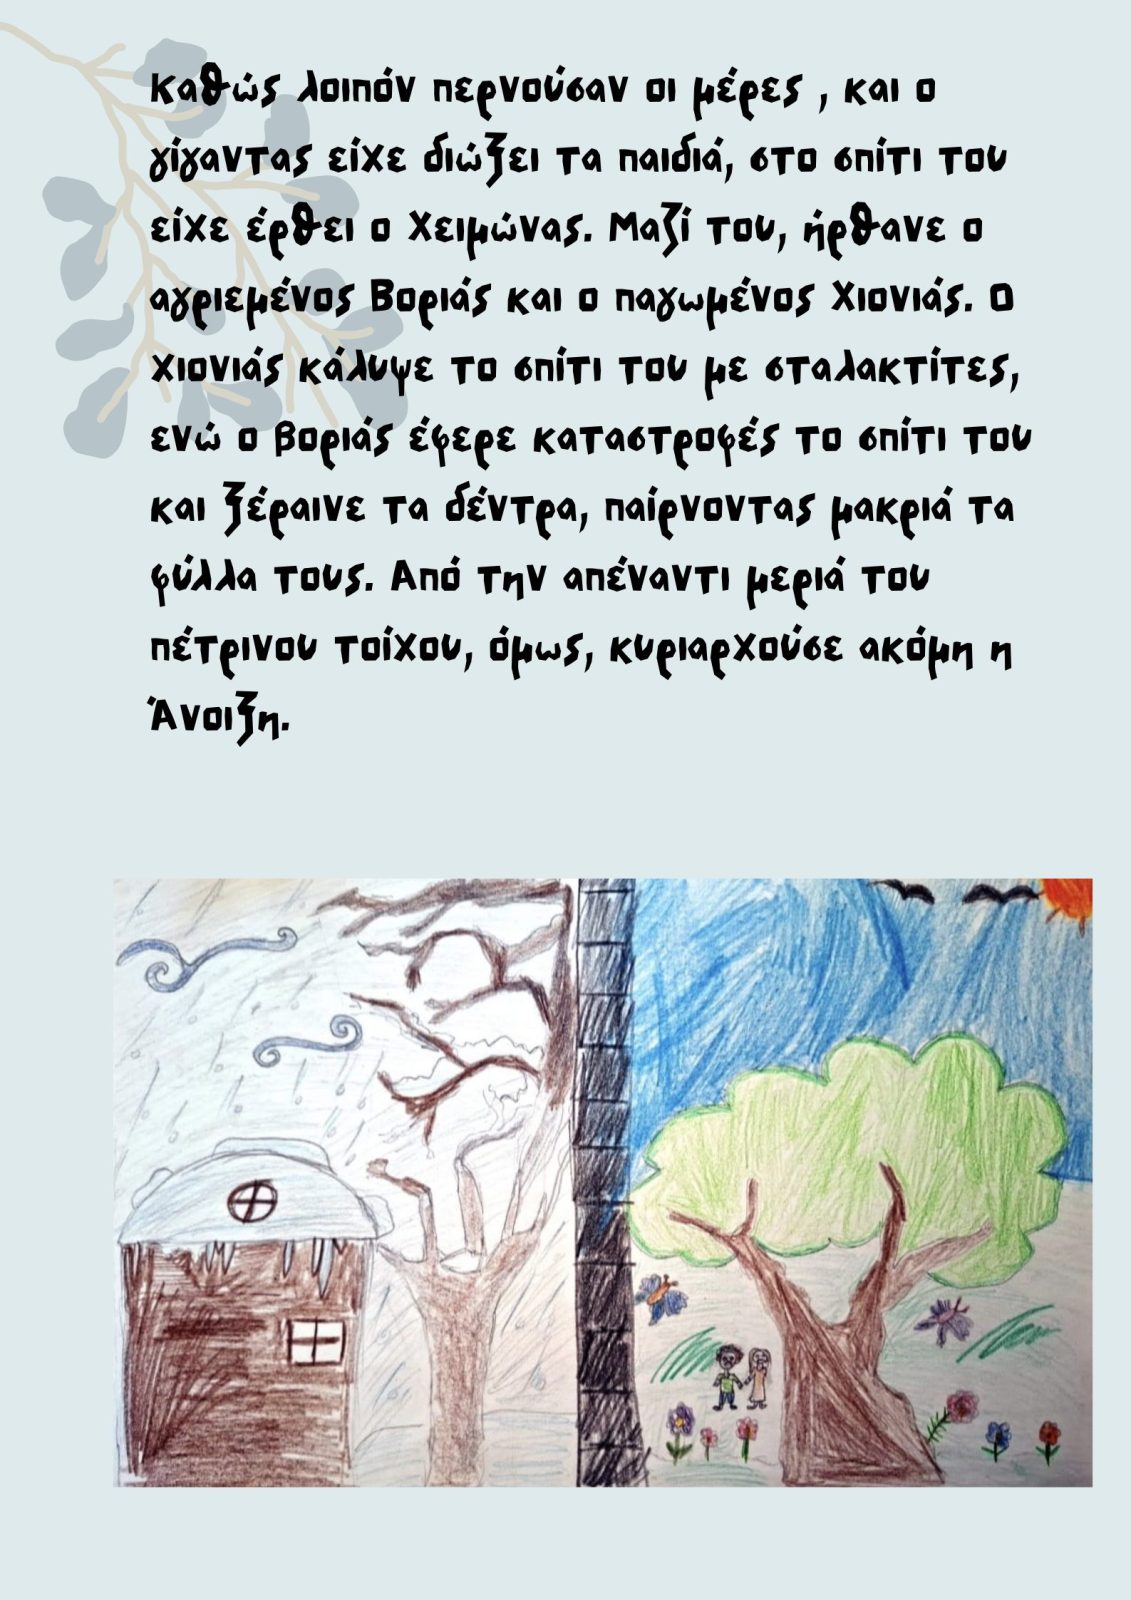 Καθώς λοιπόν περνούσαν οι μέρες , και ο
γίγαντας είχε διώξει τα παιδιά, στο σπίτι του
είχε έρθει ο Χειμώνας. Μαζί του, ήρθανε ο
αγριεμένος Βοριάς και ο παγωμένος Χιονιάς. Ο
Χιονιάς κάλυψε το σπίτι του με σταλακτίτες,
ενώ ο βοριάς έφερε καταστροφές το σπίτι του
και ξέραινε τα δέντρα, παίρνοντας μακριά τα
φύλλα τους. Από την απέναντι μεριά του
πέτρινου τοίχου, όμως, κυριαρχούσε ακόμη η
Άνοιξη.